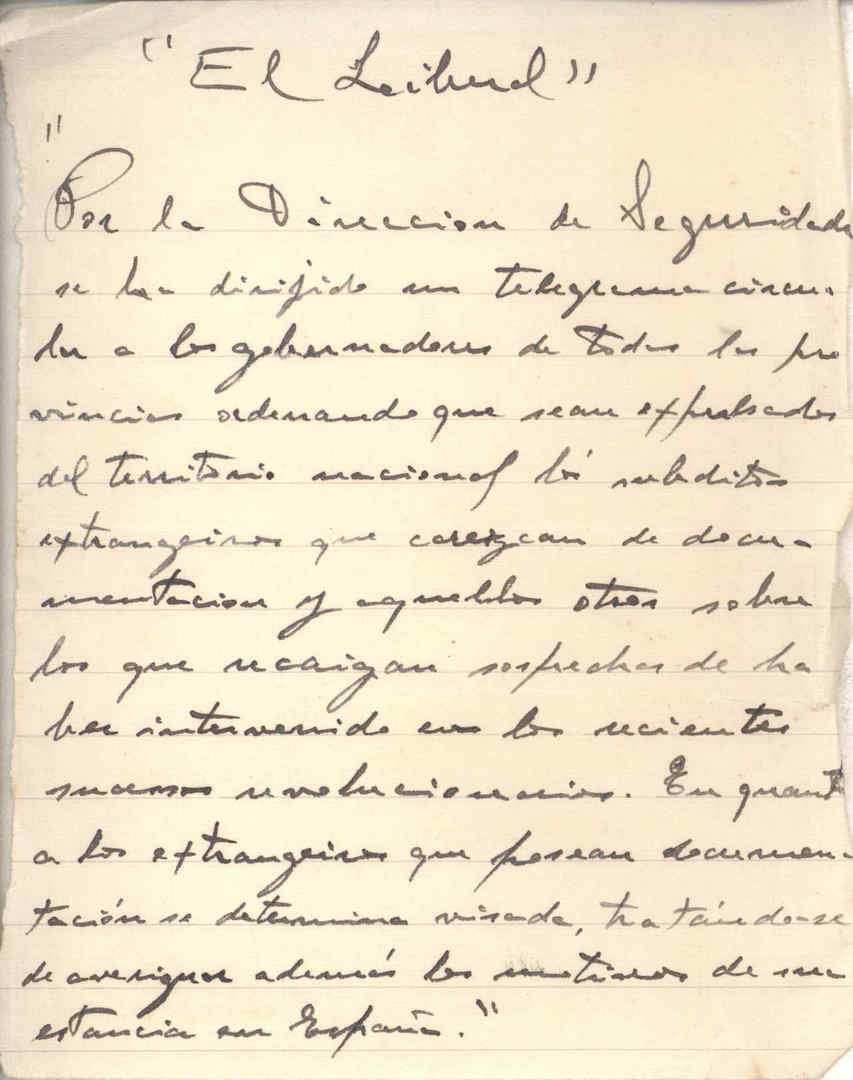 "El Leibud"
"
Por la Direccion de Seguridade
se ha dirijido un telegrama circu-
lar a los gobernadores de todas las pro
vincias ordenando que sean expulsados
del territorio nacional los subditos
extrangeiros que carezcan de docu-
mentacion y aquellos otros sobre
los que recaigan sospechas de ha
ber intervenido en los recientes
sucesos revolucionarios. En quanto
a los extrangeiros que posean documen-
tación se determina visada, tratándose
de averiguar además los motivos de su
estancia en España."